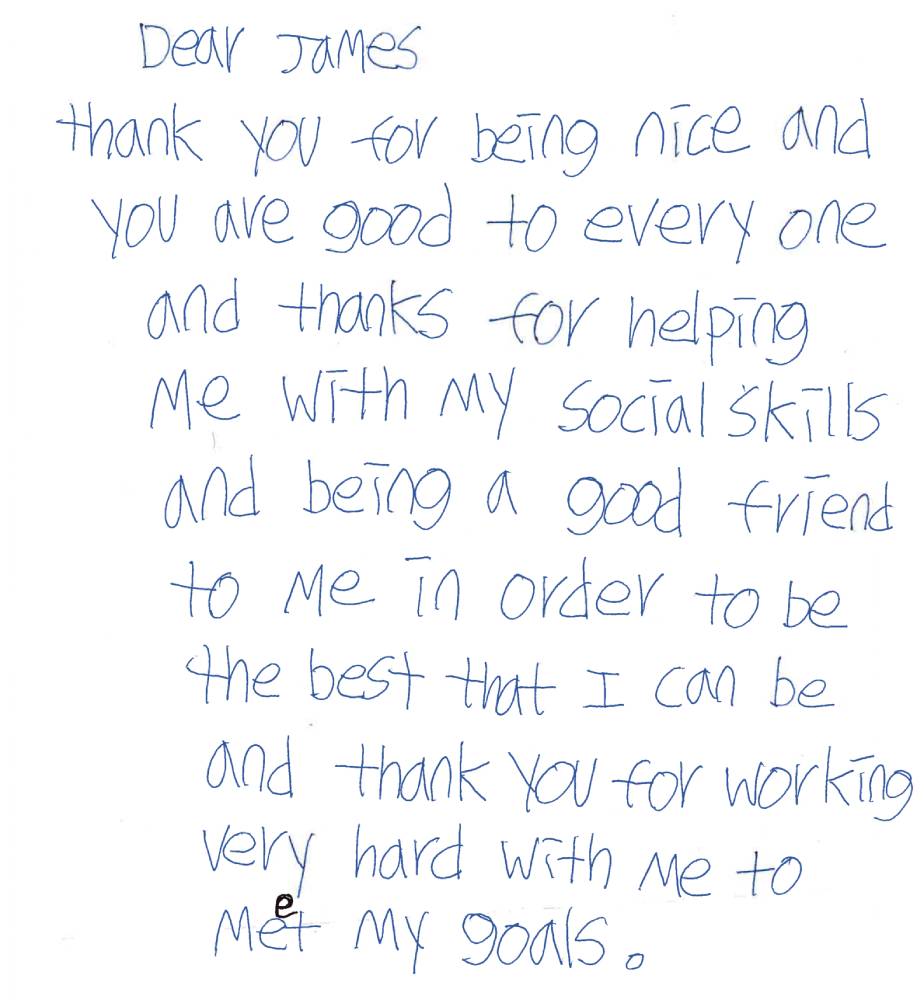 Dear James
thank you for being nice and
you are good to every one
and thanks for helping
Me with My social skills
and being a good friend
to Me in order to be
the best that I can be
and thank you for working
very hard with Me to
Meet My goals.